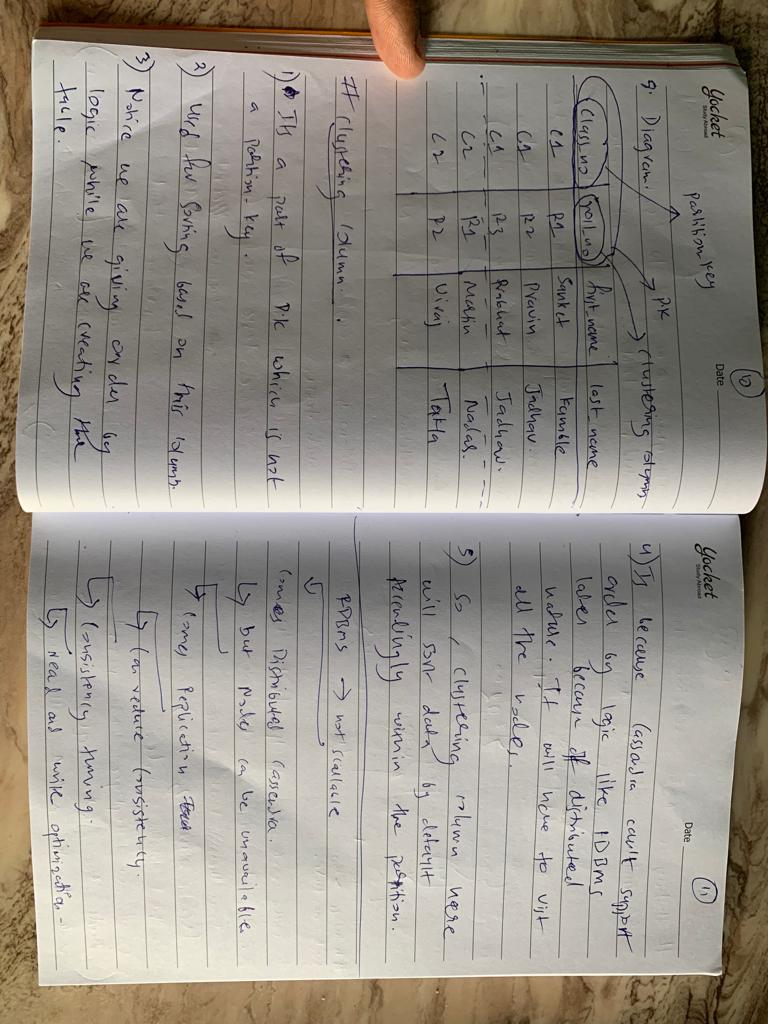 Yocket
Study Abroad
10
Date
partition key
9. Diagram.
P.K
clustering column
class_no roll_no first_name last_name
C1 R1 Sanket Kamble
C1 R2 Pravin Jadhav.
C1 R3 Prabhat Jadhav.
C2 R1 Martin Nadar.
C2 R2 Viraj
# clustering column.
1) Its a part of P.K which is not
a partition-key.
2) Used for sorting based on this column.
3) Notice we are giving order by
logic while we are creating the
table.
Yocket
Study Abroad
11
Date
4) Is because Cassandra can't support
order by logic like RDBMS
later because of distributed
nature. It will have to visit
all the nodes.
5) So, clustering column here
will sort data by default
accordingly within the partition.
RDBMS → not scallable
Comes Distributed Cassandra.
but Nodes can be unavailable
Comes Replication
Can reduce consistency.
Consistency tunning.
Read and write optimization